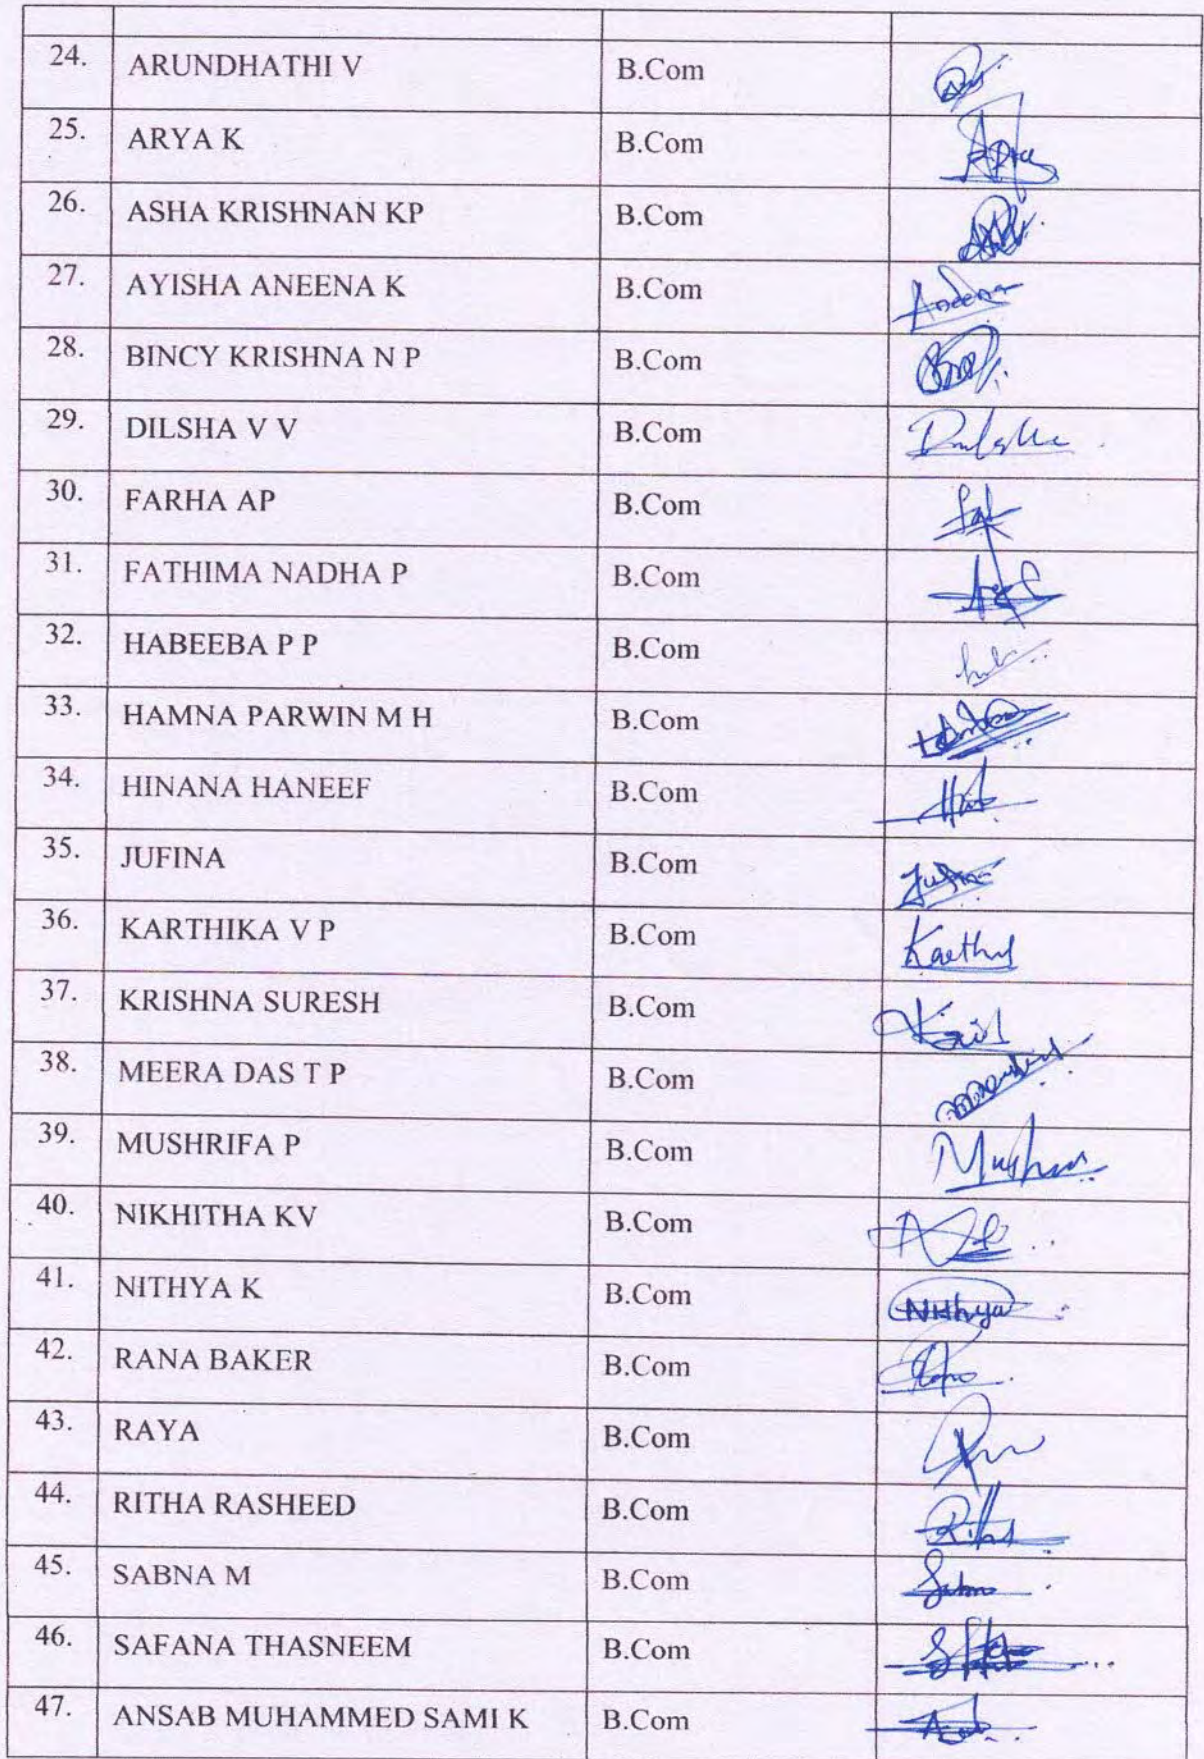 24. ARUNDHATHI V B.Com
25. ARYA K B.Com Arya
26. ASHA KRISHNAN KP B.Com
27. AYISHA ANEENA K B.Com Aneena
28. BINCY KRISHNA N P B.Com
29. DILSHA V V B.Com
30. FARHA AP B.Com
31. FATHIMA NADHA P B.Com
32. HABEEBA P P B.Com
33. HAMNA PARWIN M H B.Com
34. HINANA HANEEF B.Com
35. JUFINA B.Com Jufina
36. KARTHIKA V P B.Com
37. KRISHNA SURESH B.Com
38. MEERA DAS T P B.Com
39. MUSHRIFA P B.Com
40. NIKHITHA KV B.Com
41. NITHYA K B.Com Nithya
42. RANA BAKER B.Com
43. RAYA B.Com
44. RITHA RASHEED B.Com
45. SABNA M B.Com
46. SAFANA THASNEEM B.Com
47. ANSAB MUHAMMED SAMI K B.Com